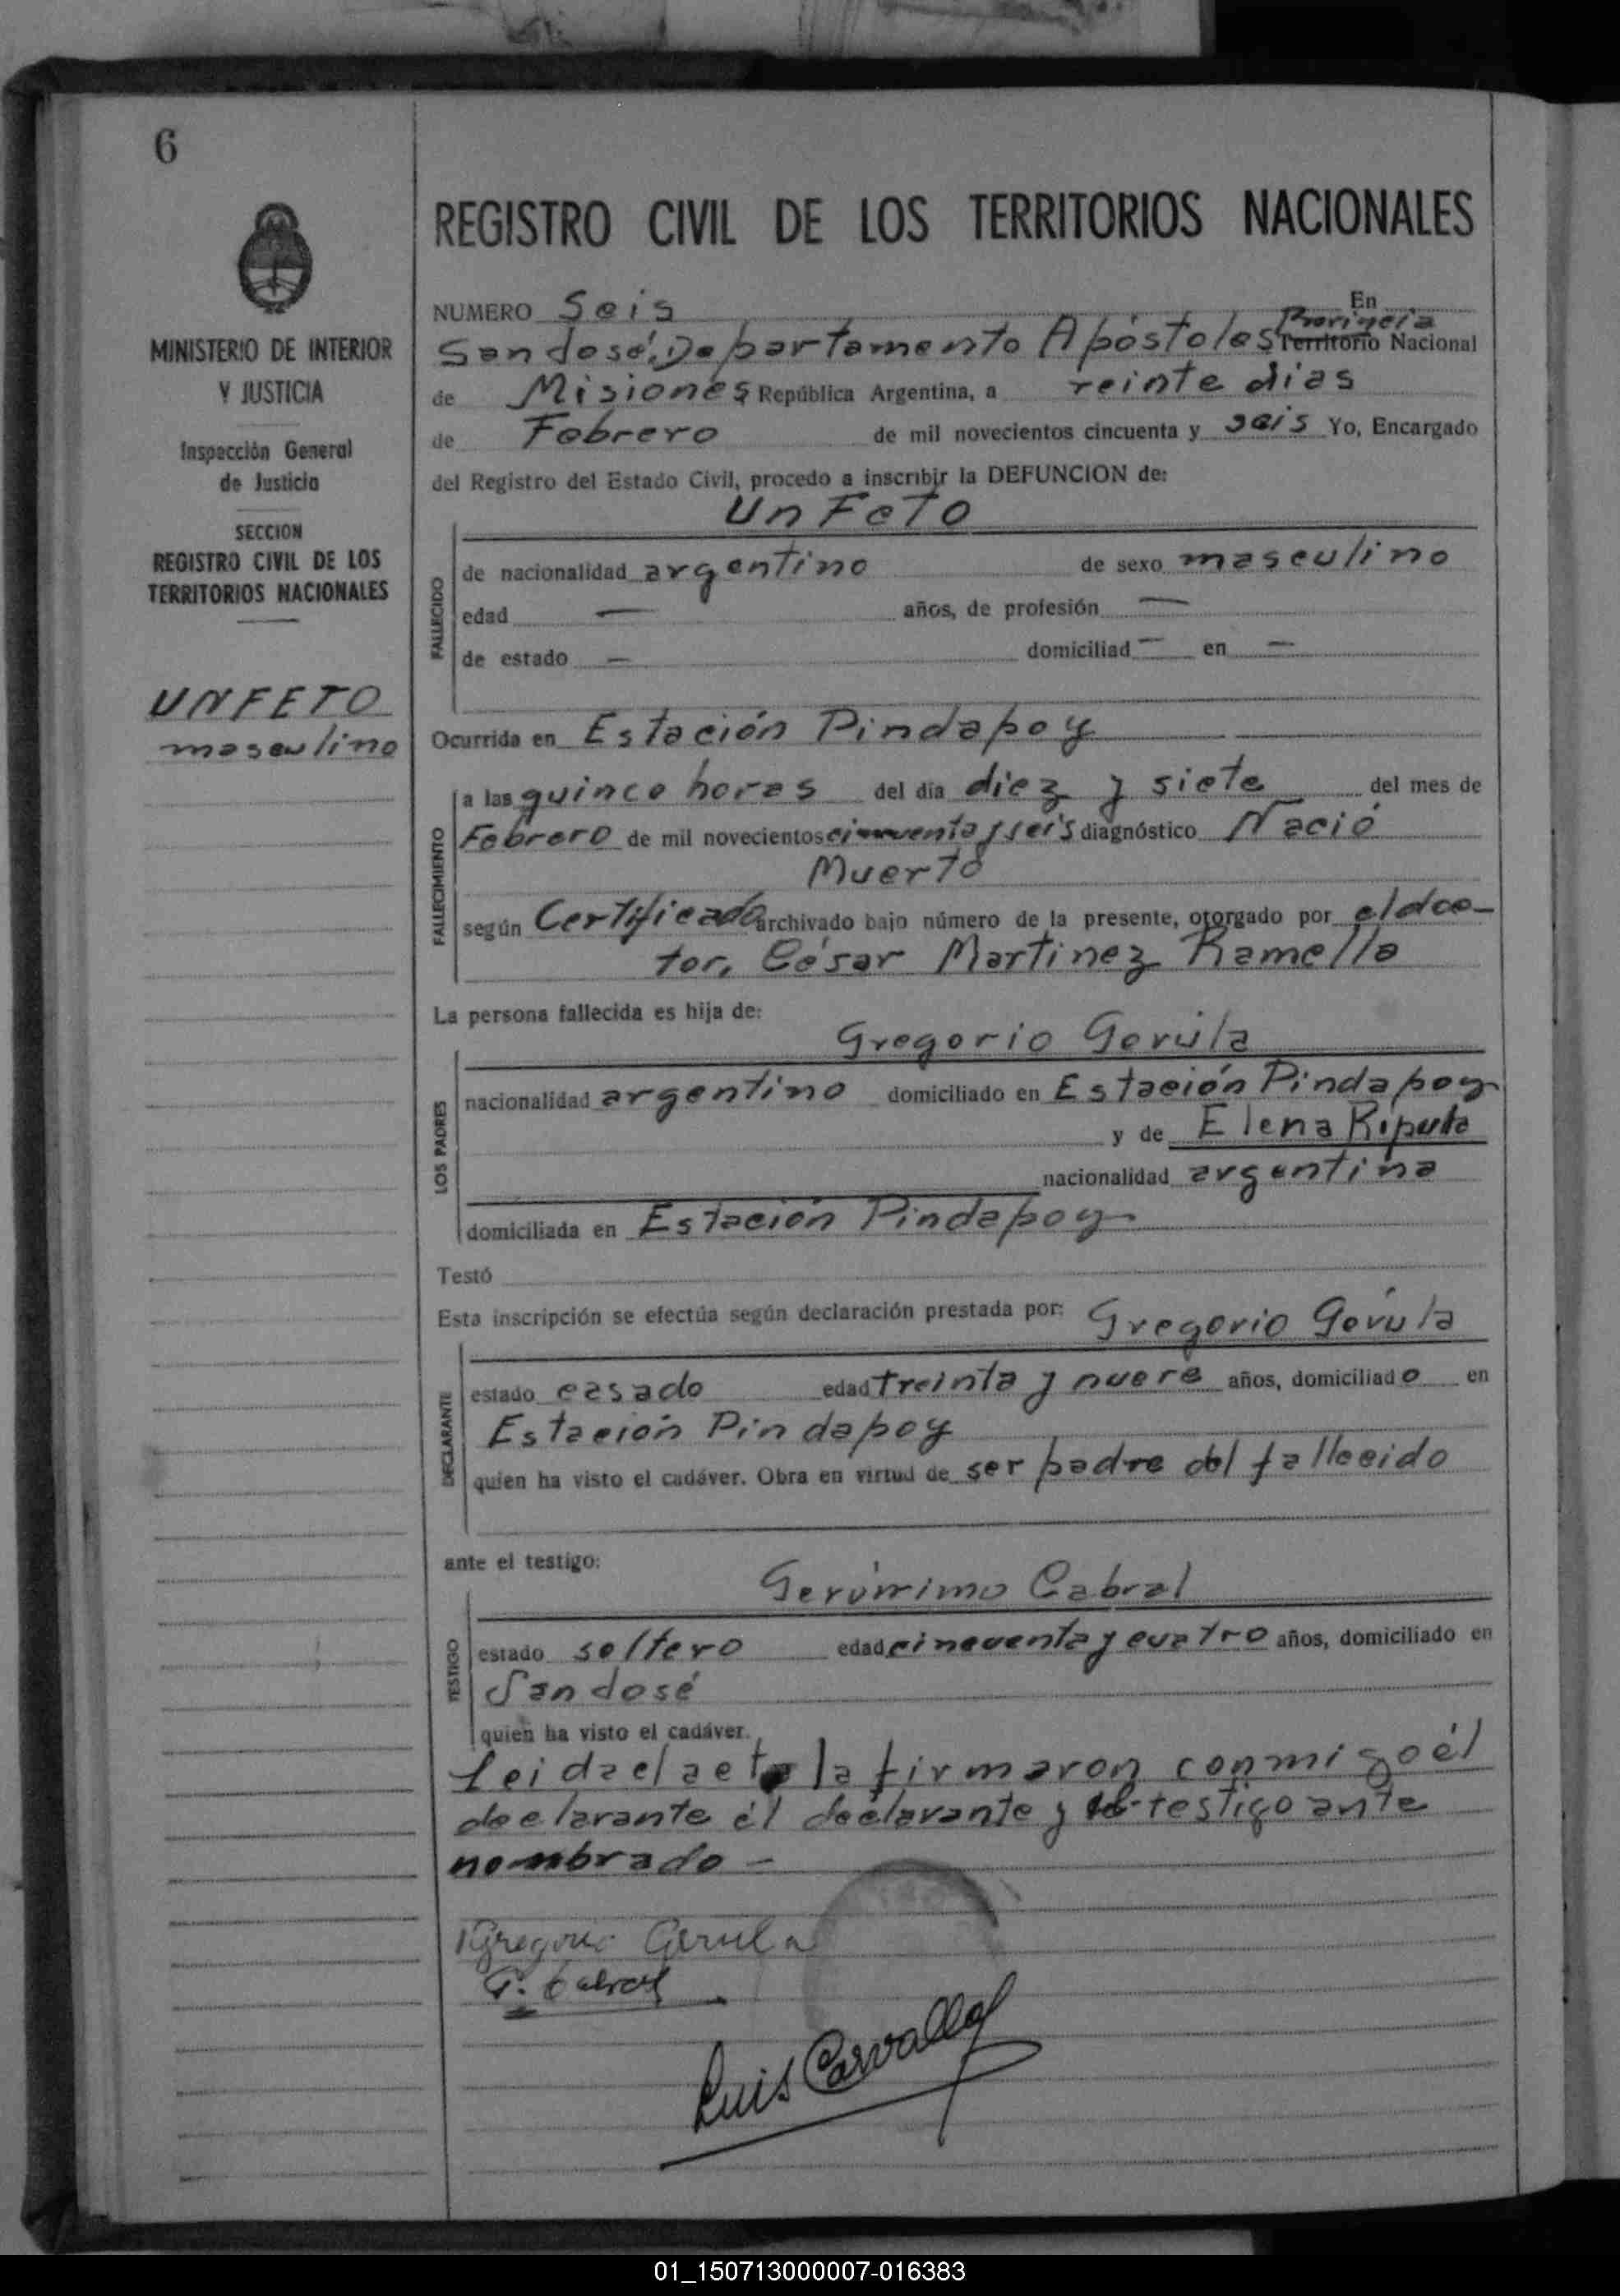 6
REGISTRO CIVIL DE LOS TERRITORIOS NACIONALES
MINISTERIO DE INTERIOR
Y JUSTICIA
Inspección General
de Justicia
SECCION
REGISTRO CIVIL DE LOS
TERRITORIOS NACIONALES
UN FETO
masculino
NUMERO Seis En
San José, Departamento Apóstoles Territorio Provincia Nacional
de Misiones República Argentina, a veinte dias
de Febrero de mil novecientos cincuenta y seis Yo, Encargado
del Registro del Estado Civil, procedo a inscribir la DEFUNCION de:
Un Feto
FALLECIDO
de nacionalidad argentino de sexo masculino
edad — años, de profesión —
de estado — domiciliad — en —
Ocurrida en Estación Pindapoy
FALLECIMIENTO
a las quince horas del día diez y siete del mes de
Febrero de mil novecientos cincuenta y seis diagnóstico Nació
Muerto
según Certificado archivado bajo número de la presente, otorgado por el doc-
tor, César Martinez Ramella
La persona fallecida es hija de:
Gregorio Gerula
LOS PADRES
nacionalidad argentino domiciliado en Estación Pindapoy
y de Elena Riputa
nacionalidad argentina
domiciliada en Estación Pindapoy
Testó
Esta inscripción se efectúa según declaración prestada por: Gregorio Gerula
DECLARANTE
estado casado edad treinta y nueve años, domiciliado en
Estación Pindapoy
quien ha visto el cadáver. Obra en virtud de ser padre del fallecido
ante el testigo:
Gerónimo Cabral
TESTIGO
estado soltero edad cincuenta y cuatro años, domiciliado en
San José
quien ha visto el cadáver.
Leida el acta la firmaron conmigo él
declarante él declarante y el testigo ante
nombrado -
Gregorio Gerula
G. Cabral
Luis Carvallo
01_150713000007-016383